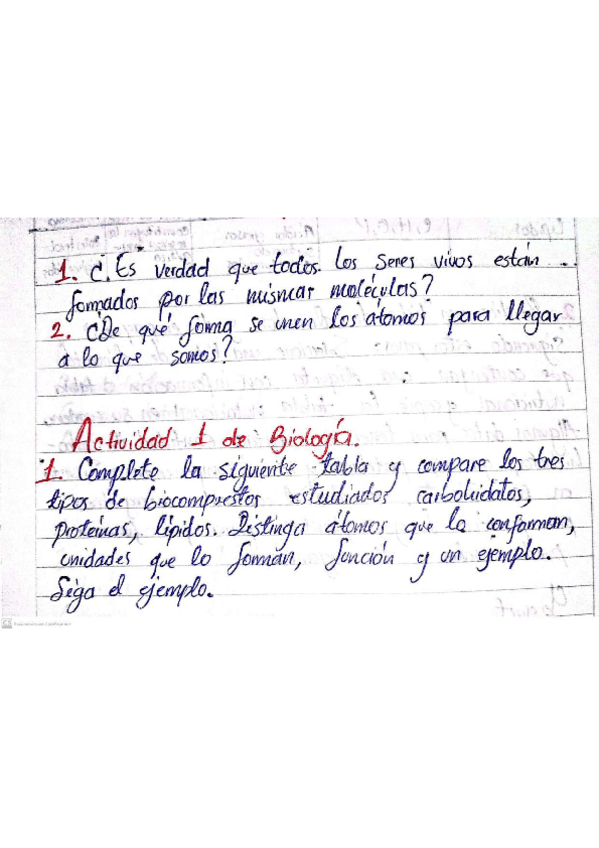 1. ¿Es verdad que todos los seres vivos están
formados por las mismas moléculas?
2. ¿De qué forma se unen los átomos para llegar
a lo que somos?
Actividad 1 de Biología.
1. Complete la siguiente tabla y compare los tres
tipos de biocomprestos estudiados carbohidatos,
proteínas, lípidos. Distinga átomos que lo conforman,
unidades que lo forman, función y un ejemplo.
Siga el ejemplo.